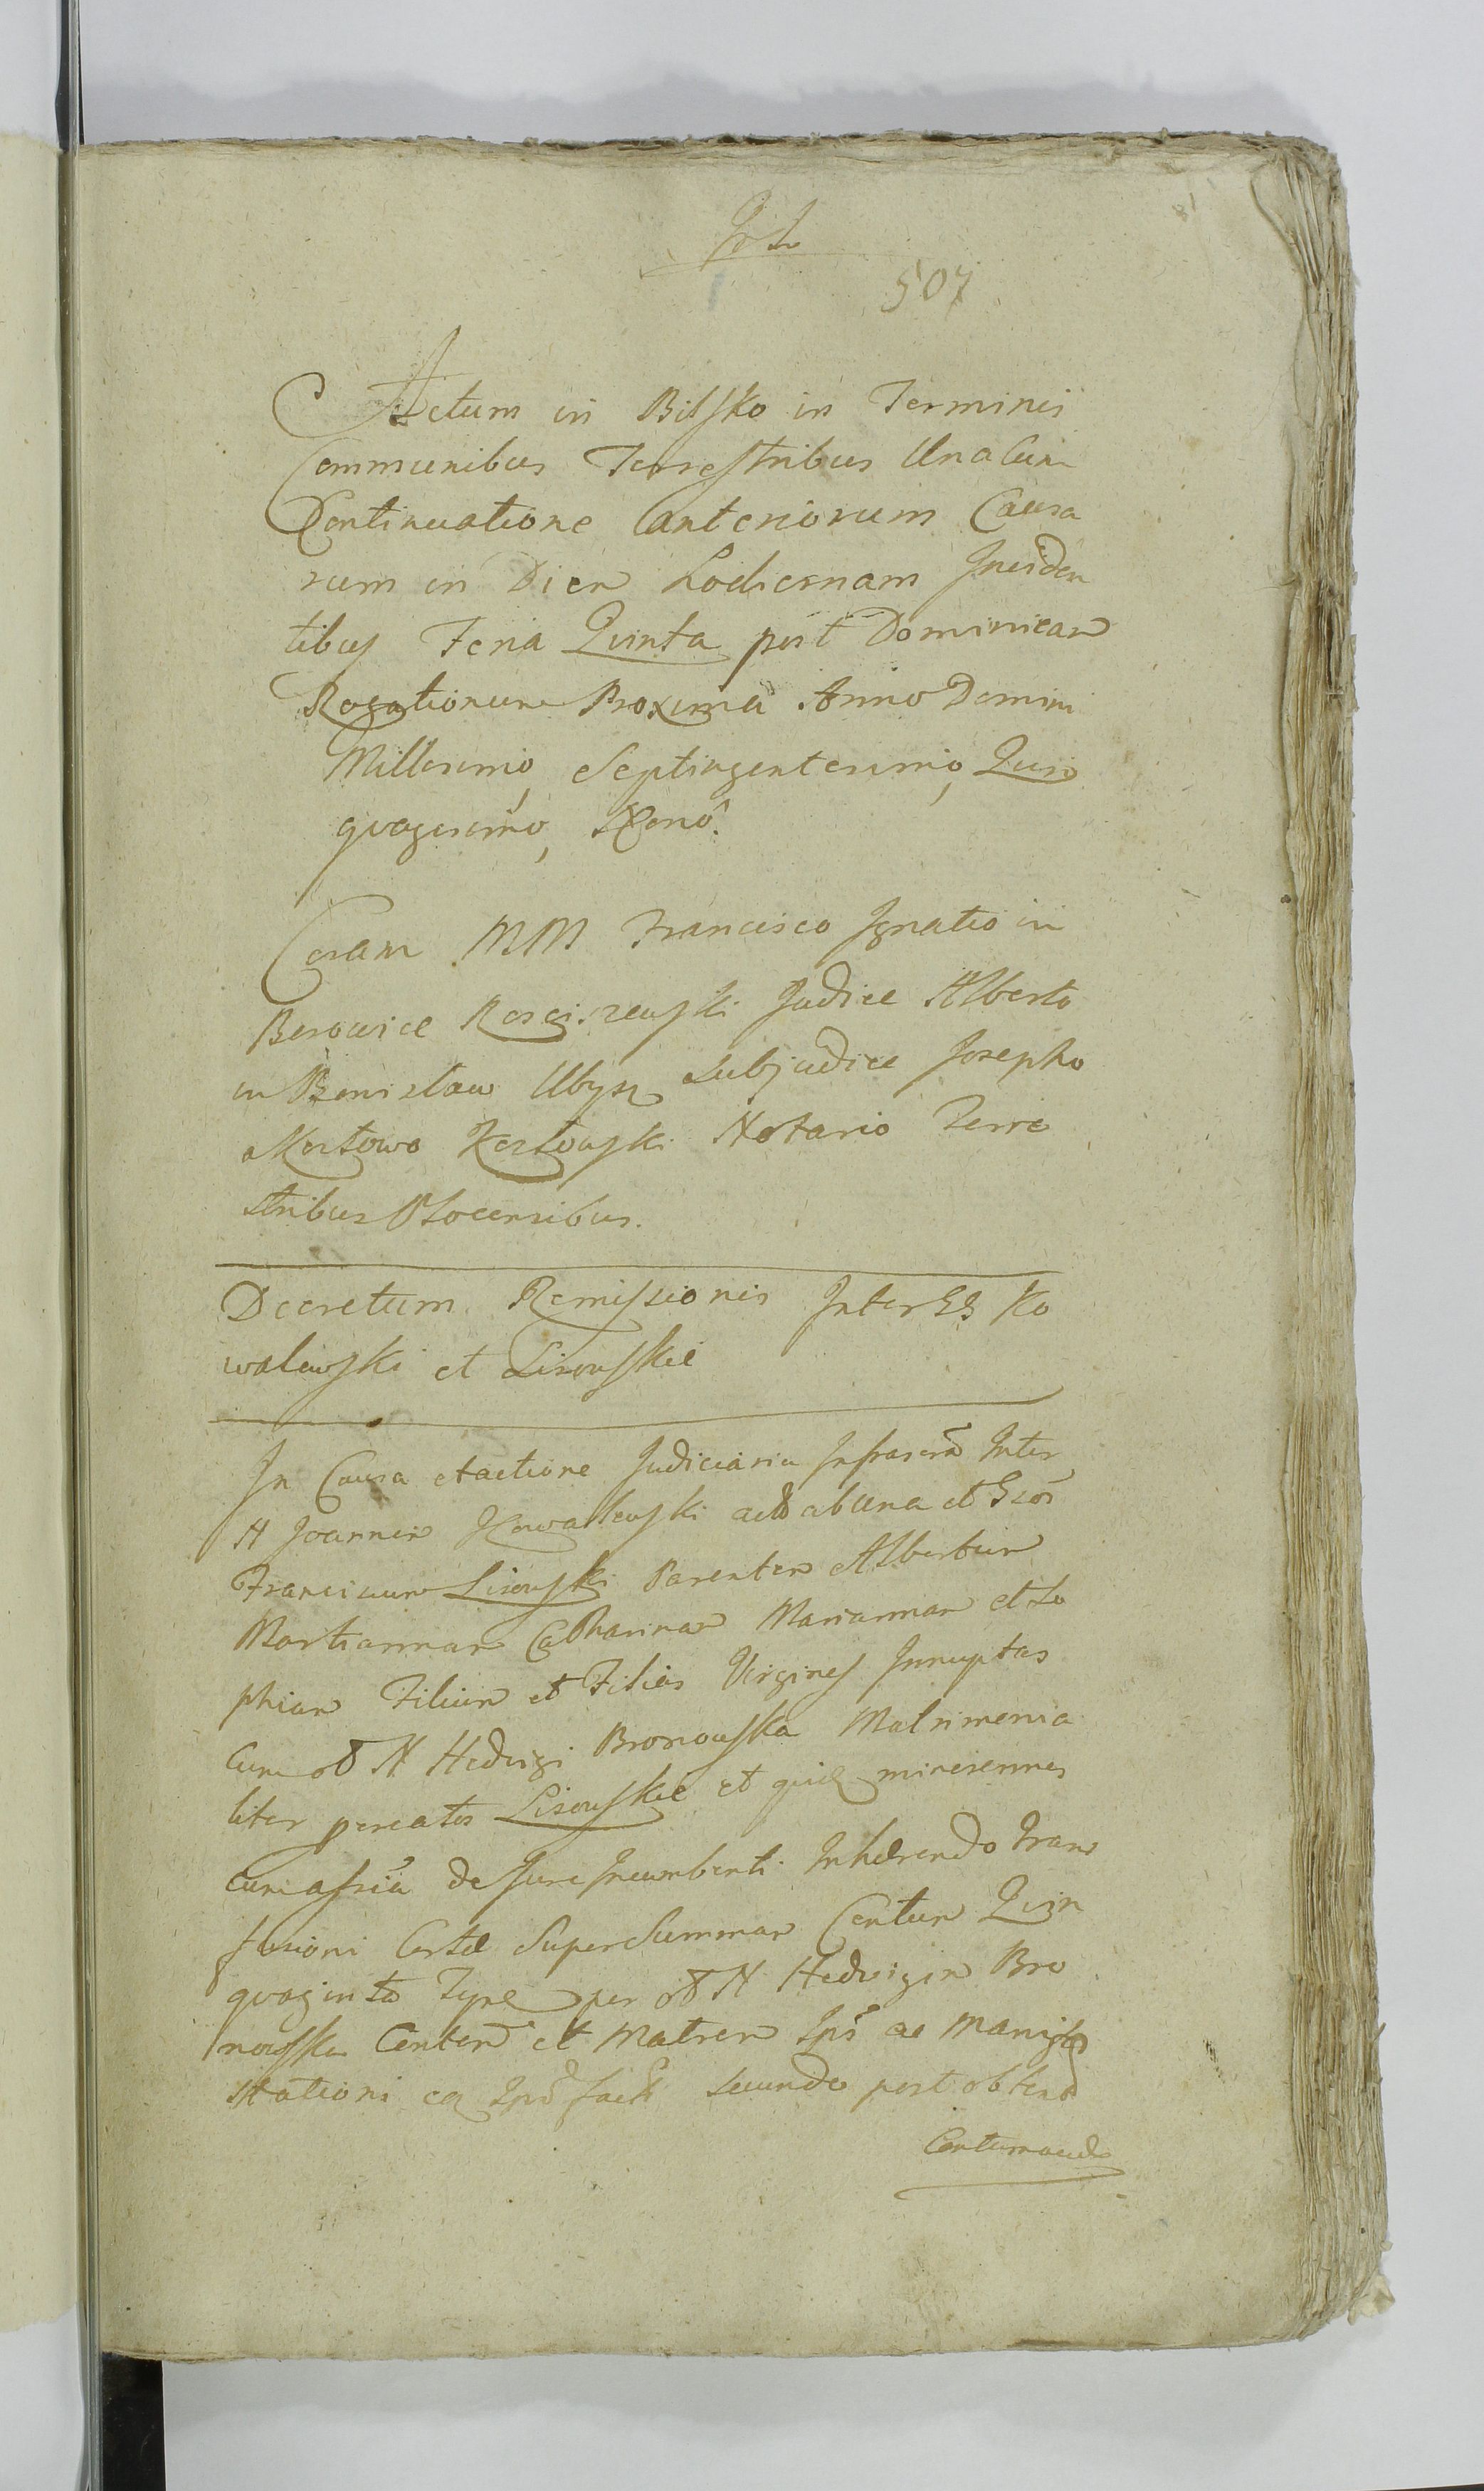 507
Actum in Bilsko in Terminis
Communibus Terrestribus Unacum
Continuatione Anteriorum Causa
rum in Diem Hodiernam Inciden
tibus Feria Quinta post Dominicam
Rogationum Proxima Anno Domini
Millesimo, Septingentesimo, Quin
quagesimo,
Coram MM Francisco Ignatio in
Borowice Rosciszewski Judice Alberto
in Bromisław Ubysz Subjudice Josepho
a Karłowo Notario Terre
stribus Plocensibus.
Decretum Remissionis Inter GG Ko
walewski et Lisowskie
In Causa et actione Judiciaria Infrascrã Inter
N Joannem Kowalewski ab una et
Franciscum Lisowski Parentem Albertum
Martiannam Catharinam Mariannam et So
phiam Filium et Filias Virgines Innuptas
cum N Hedvigi Bronowska Matrimonia
liter Lisowskie et minorennes
cum de Jure Incumbenti Inhærendo Trans
fusioni Certæ Super Summam Centum Quin
quaginta per N Hedvigim Bro
nowska et Matrem ac Manife
stationi secundo post